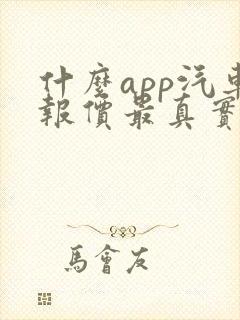 什麼app汽車
報價最真實
馬會友